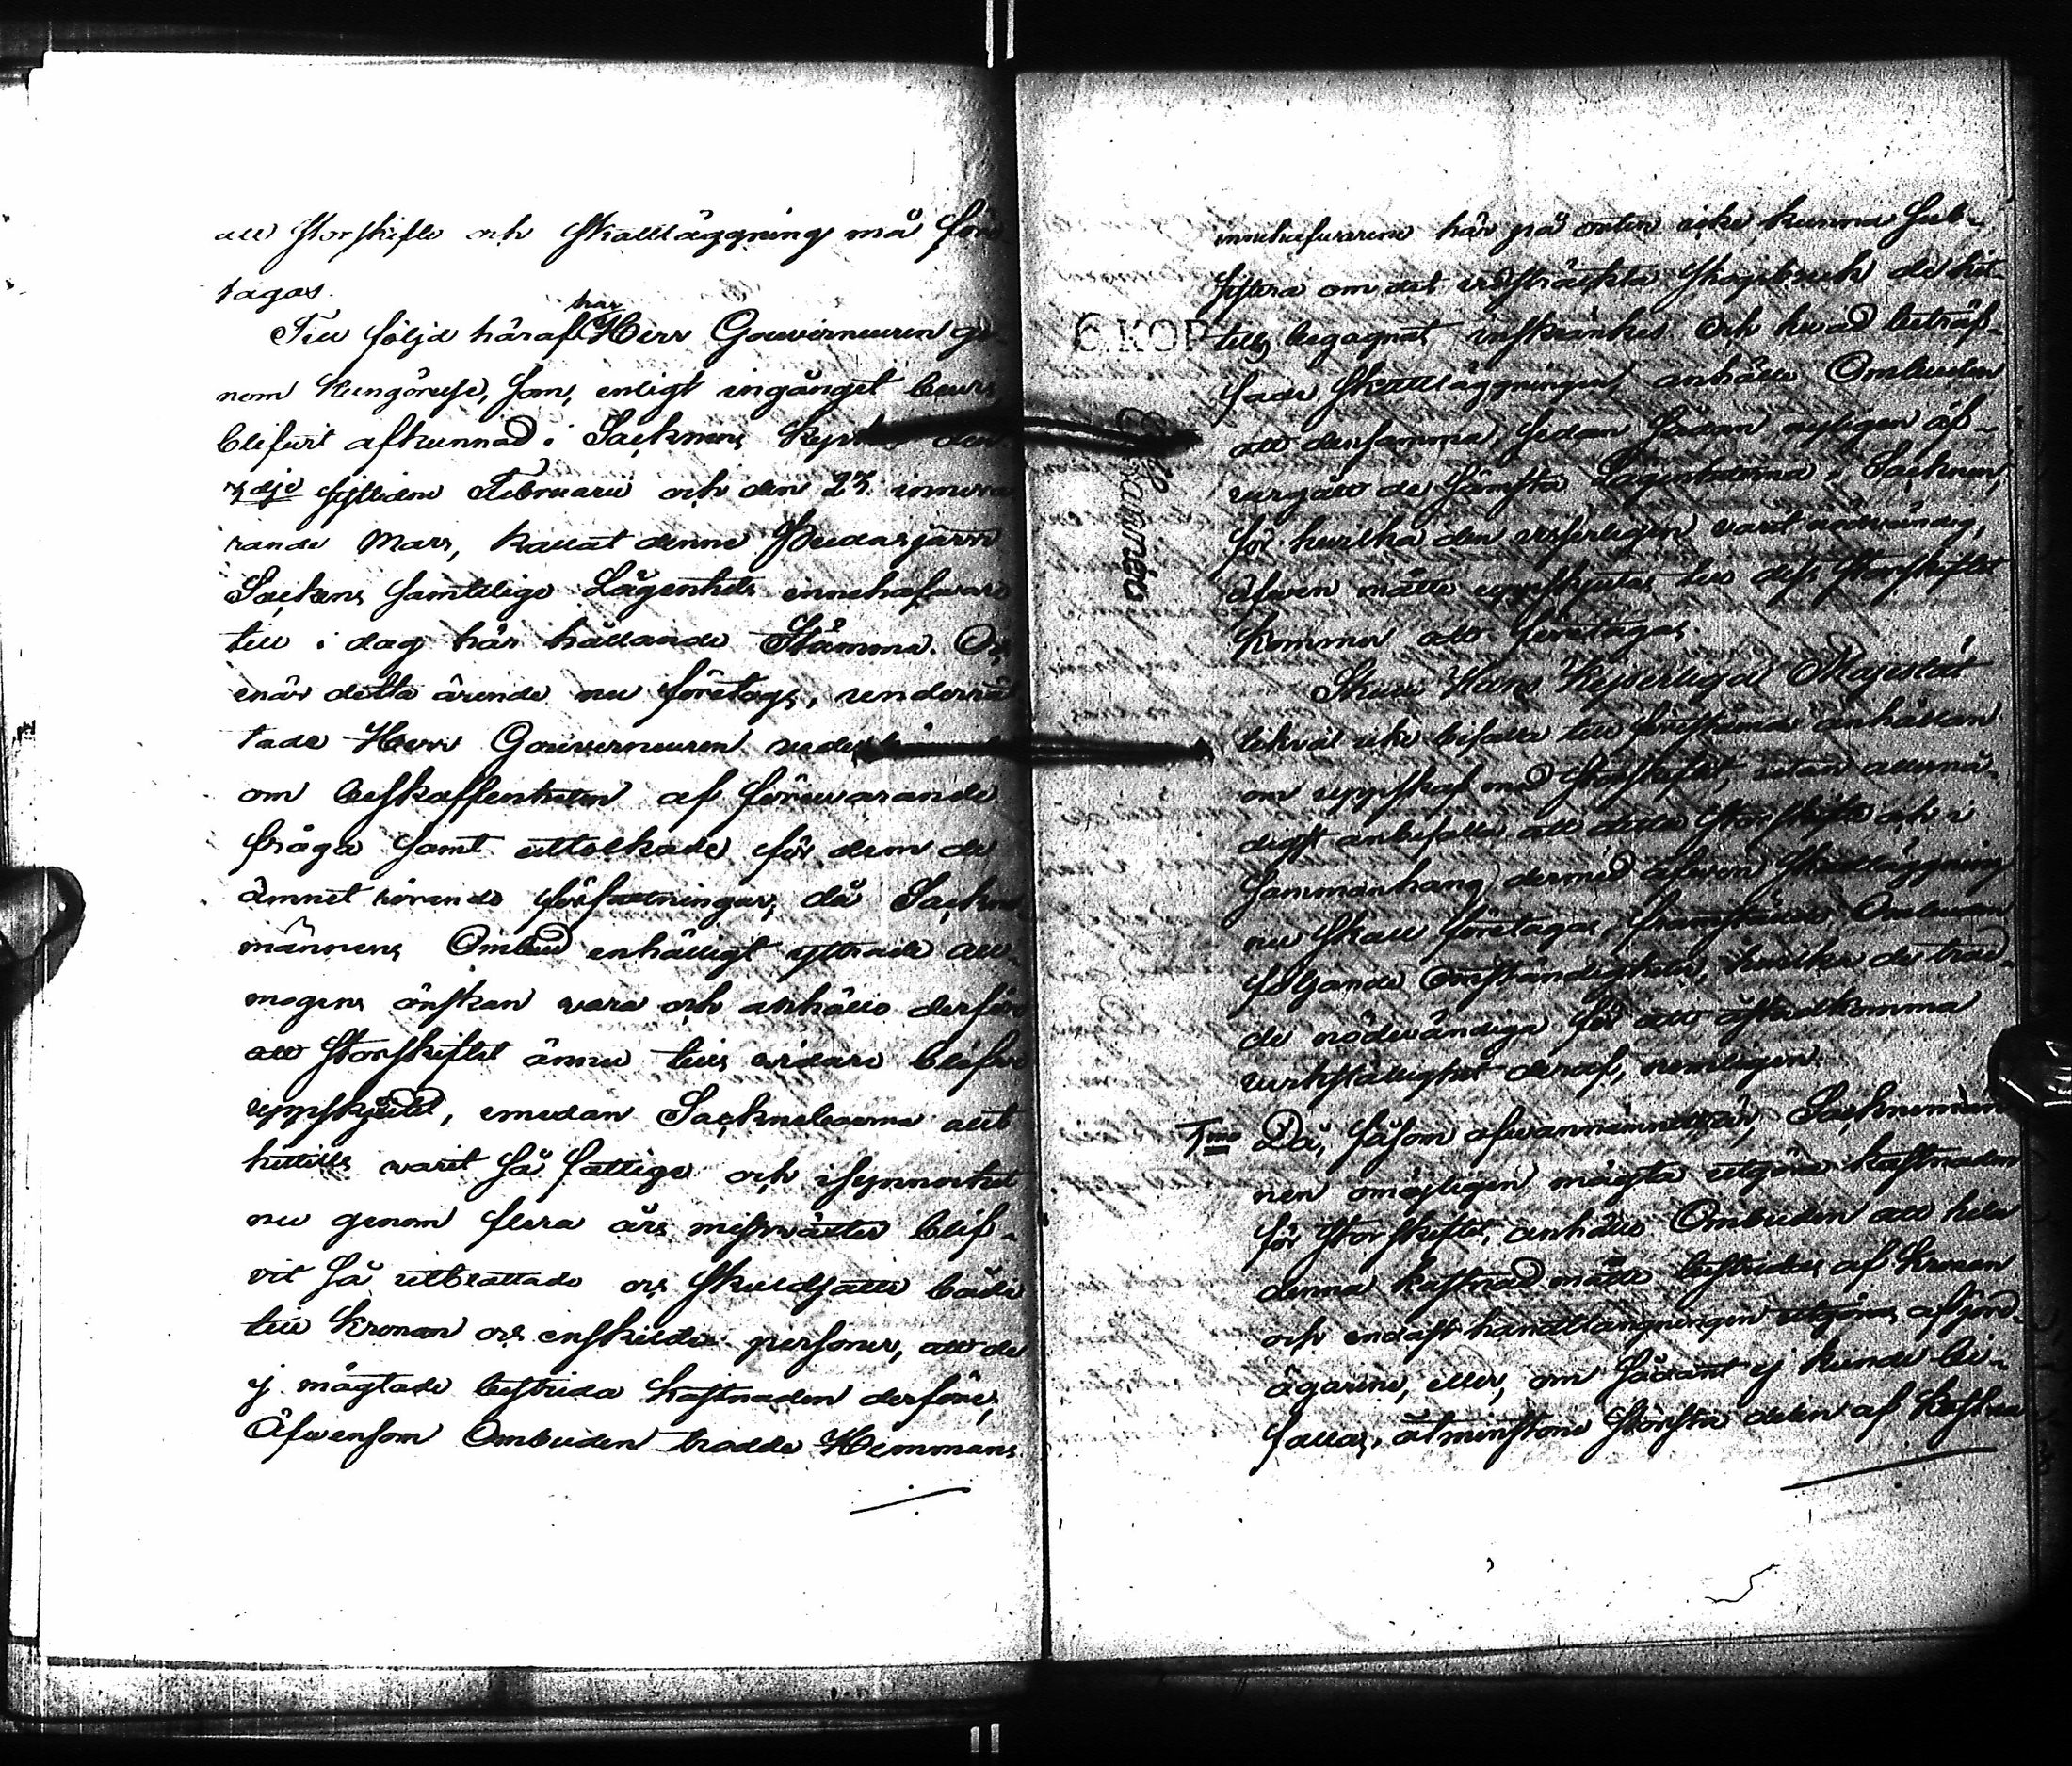 att Storskifte och Skattläggning må före
tagas.
Till följd häraf har Herr Gouverneuren ge-
nom Kungörelse, som, enligt ingånget bevis,
blifvit afkunnad i Socknens Kyrka den
3dje sistledne Februarii och den 23 inneva
rande Mars, kallat denne Pudasjärvi
Sockens samtelige Lägenhets innehafware
till i dag här hållande Stämma. Och
enär detta ärende nu företogs, underrät
tade Herr Gouverneuren
om beskaffenheten af förewarande
fråga samt uttolkade för dem de
ämnet rörande författningar, då Sockne
männens Ombud enhälligt yttrade All-
mogens önskan vara och anhöllo derföre
att Storskiftet ännu tills vidare blefve
uppskjutet, emedan Sockneboerna allt
hittills varit så fattige och isynnerhet
nu genom flera års missväxter blif-
vit så utblottade och skuldsatte både
till Kronan och enskilde personer, att de
ej mägtade bestrida kostnaden derföre,
Äfvensom Ombuden trodde Hemmans
innehafvarene här på orten icke kunna sub-
sistera om det vidsträckta skogsbruk de hit-
tills begagnat inskränkes. Och hvad beträf-
fade Skattläggningen anhöllo Ombuden
att densamma, sedan sådan nyligen öf-
vergått de sämsta Lägenheterna i Socknen,
för hvilka den egentligen varit nödvändig,
äfven måtte uppskjutas till dess Storskiftet
kommer att företagas.
Skulle Hans Kejserliga Majestät
likväl icke bifalla till förestående anhållan
om uppskof med Storskiftet, utan allernå-
digst anbefalla att detta Storskifte och i
sammanhang dermed äfven Skattläggning
nu skall företagas, framställde Ombuden
följande omständigheter, hvilka de trod-
de nödvändiga för att åstadkomma
verkställighet deraf, nemligen:
1mo Då, såsom ofvannämndt är, Socknemän
nen omöjligen mägta utgöra kostnaden
för Storskiftet, anhöllo Ombuden att hela
denna kostnad måtte bestridas af Kronan
och endast handtlangningen utgöras af jord-
ägarene, eller, om sådant ej kunde bi-
fallas, åtminstone största delen af kostna